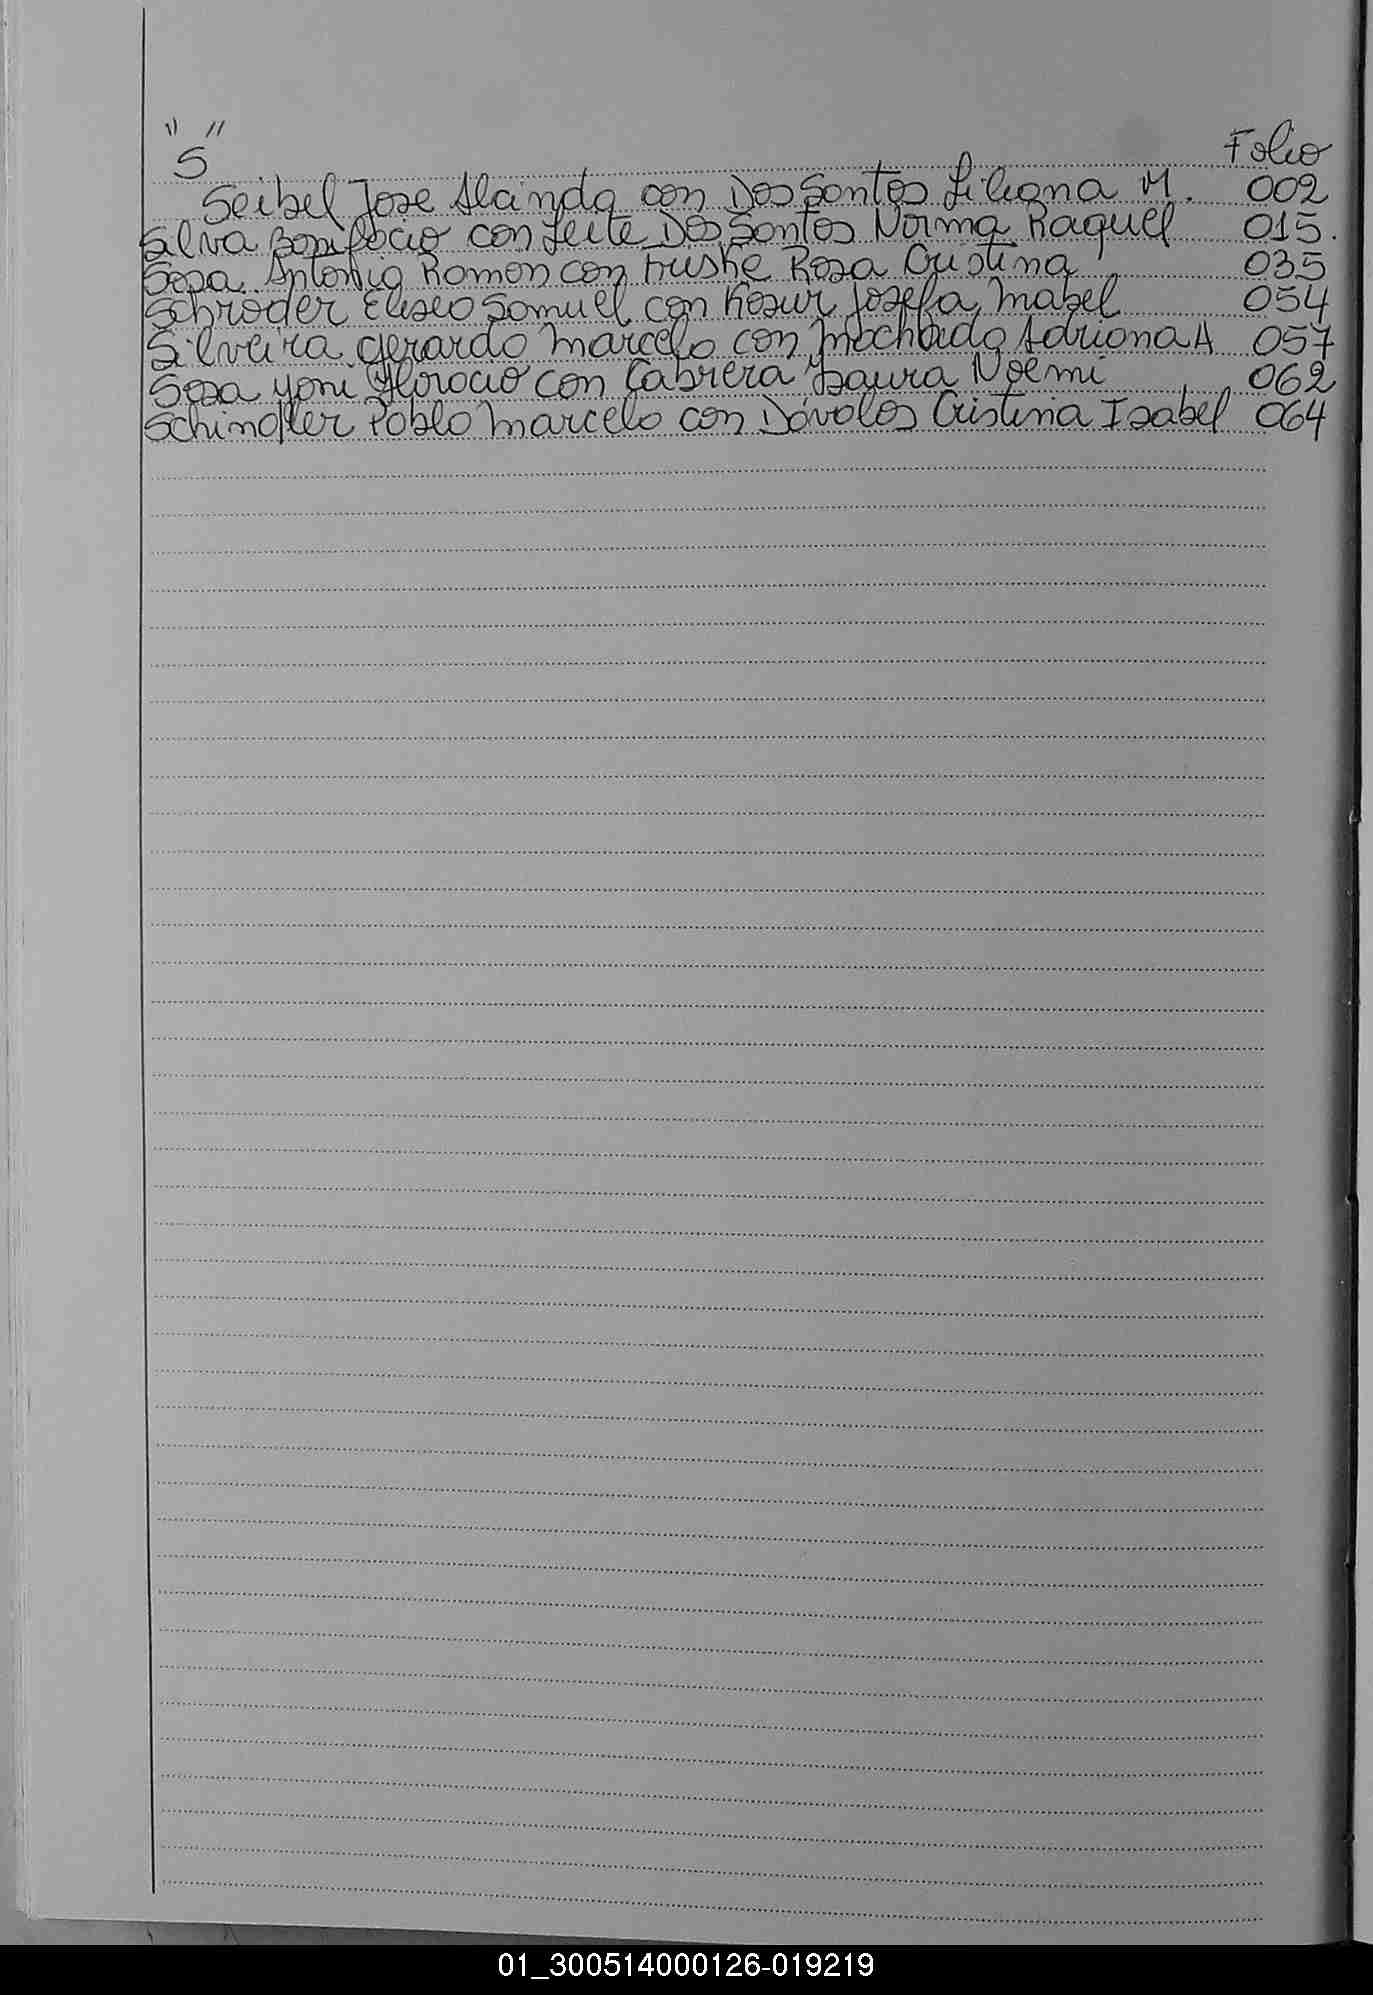 "S"
Folio
Seibel Jose Alcindo con Dos Santos Liliana M. 002
Silva Bonifacio con Leite Dos Santos Norma Raquel 015.
Sosa Antonio Ramon con Rosa Cristina 035
Schroder Eliseo Samuel con Josefa Mabel 054
Silveira Gerardo Marcelo con Machado Adriana A 057
Sosa Yoni Horacio con Cabrera Laura Noemi 062
Schindler Pablo Marcelo con Dávalos Cristina Isabel 064
01_300514000126-019219